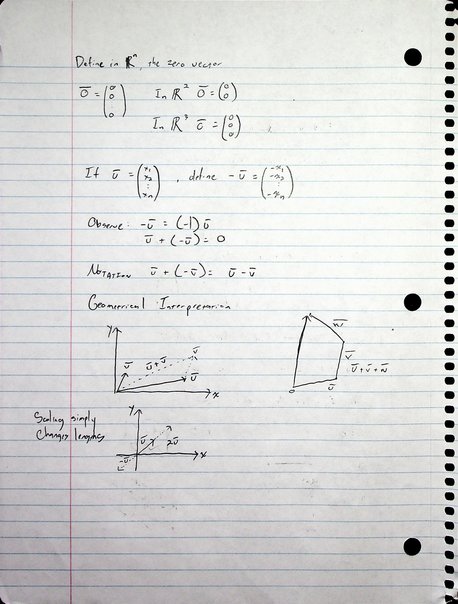 Define in ℝⁿ, the zero vector
0̅ = (0 0 ⋮ 0) In ℝ² 0̅ = (0 0)
In ℝ³ 0̅ = (0 0 0)
If u̅ = (x₁ x₂ ⋮ xₙ), define -u̅ = (-x₁ -x₂ ⋮ -xₙ)
Observe: -u̅ = (-1) u̅
u̅ + (-u̅) = 0
Notation u̅ + (-v̅) = u̅ - v̅
Geometrical Interpretation
y
v̅ u̅+v̅ v̅
u̅
x
w̅
v̅
u̅+v̅+w̅
0 u̅
Scaling simply
Changes lengths
y
u̅ 2u̅
-u̅
x